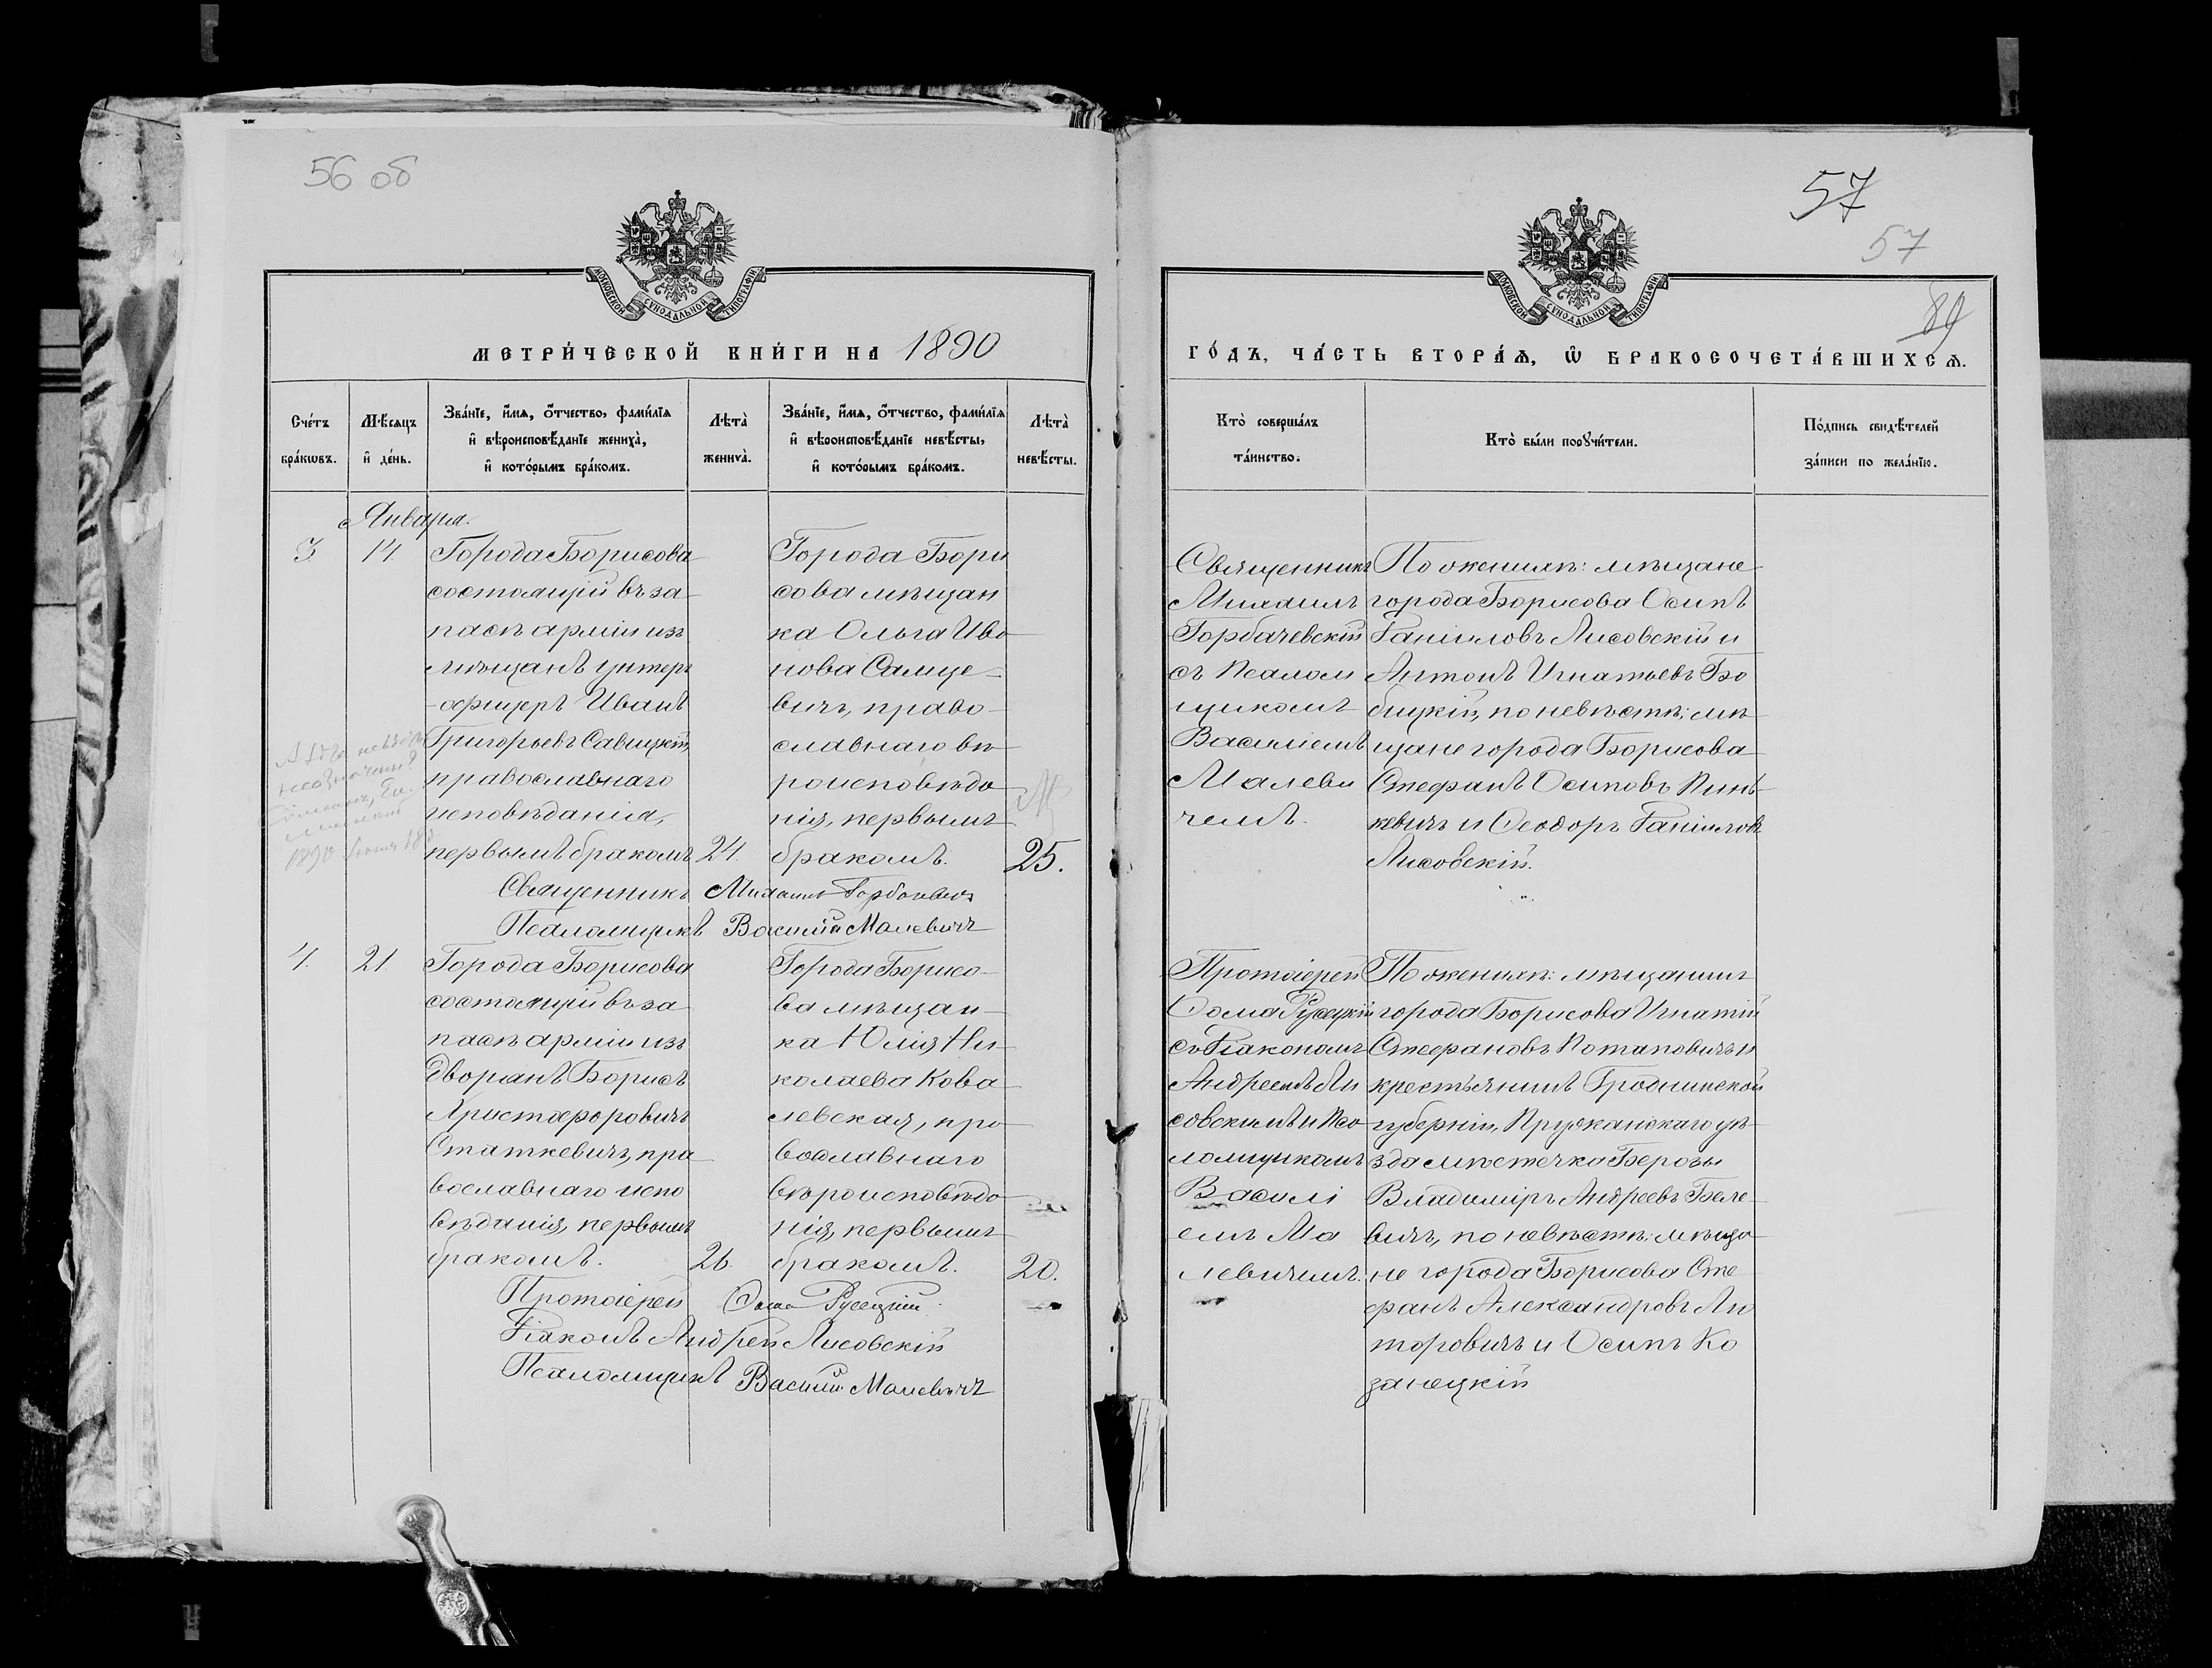 56 об
57
57
89
МОСКОВСКОЙ СУНОДАЛЬНОЙ ТИПОГРАФІИ
МОСКОВСКОЙ СУНОДАЛЬНОЙ ТИПОГРАФІИ
МЕТРИ́ЧЕСКОЙ КНИ́ГИ НА 1890
ГО́ДЪ, ЧА́СТЬ ВТОРА́Ѧ, Ѿ БРАКОСОЧЕТА́ВШИХСѦ.
Сче́тъ
бра́кωвъ.
Мѣ́сѧцъ
и҆ де́нь.
Зва́нїе, и҆́мѧ, ѻ҆́тчество, фами́лїѧ
и҆ вѣроисповѣ́данїе жениха̀,
и҆ кото́рымъ бра́комъ.
Лѣта̀
жениха̀.
Зва́нїе, и҆́мѧ, ѻ҆́тчество, фами́лїѧ
и҆ вѣроисповѣ́данїе невѣ́сты,
и҆ кото́рымъ бра́комъ.
Лѣта̀
невѣ́сты.
Кто̀ соверша́лъ
та́инство.
Кто̀ бы́ли порꙋчи́тели.
По́дпись свидѣ́телей
за́писи по жела́нїю.
Января.
3.
14
Города Борисова
состоящій въ за
пасѣ арміи изъ
мѣщанъ унтеръ
-офицеръ Иванъ
Григорьевъ Савицкій,
православнаго
исповѣданія,
первымъ бракомъ
24.
Города Бори
сова мѣщан
ка Ольга Ива
нова Самце-
вичъ, право-
славнаго вѣ
роисповѣда
нія, первымъ
бракомъ.
25.
Священникъ
Михаилъ
Горбачевскій
съ псалом
щикомъ
Василіемъ
Малеви
чемъ.
По женихѣ: мѣщане
города Борисова Осипъ
Даніиловъ Лисовскій и
Антонъ Игнатьевъ Бо
бицкій, по невѣстѣ: мѣ
щане города Борисова
Стефанъ Осиповъ Пинь
кевичъ и Ѳеодоръ Даніиловъ
Лисовскій.
1890
Священникъ Михаилъ Горбачевскій
Псаломщикъ Василій Малевичъ
4.
21.
Города Борисова
состоящій въ за
пасѣ арміи изъ
дворянъ Борисъ
Христофоровичъ
Статкевичъ, пра
вославнаго испо
вѣданія, первымъ
бракомъ.
26.
Города Борисо-
ва мѣщан-
ка Юлія Ни-
колаева Кова
левская, пра
вославнаго
вѣроисповѣда
нія, первымъ
бракомъ.
20.
Протоіерей
Ѳома Русецкій
съ Діакономъ
Андреемъ Ли
совскимъ и Пса
ломщикомъ
Василі
емъ Ма
левичемъ.
По женихѣ: мѣщанинъ
города Борисова Игнатій
Стефановъ Потаповичъ и
крестьянинъ Гродненской
губерніи, Пружанскаго уѣ
зда мѣстечка Березы
Владиміръ Андреевъ Беле
вичъ, по невѣстѣ: мѣща
не города Борисова Сте
фанъ Александровъ Ли
торовичъ и Осипъ Ко
занецкій
Протоіерей Ѳома Русецкій.
Діаконъ Андрей Лисовскій
Псаломщикъ Василій Малевичъ